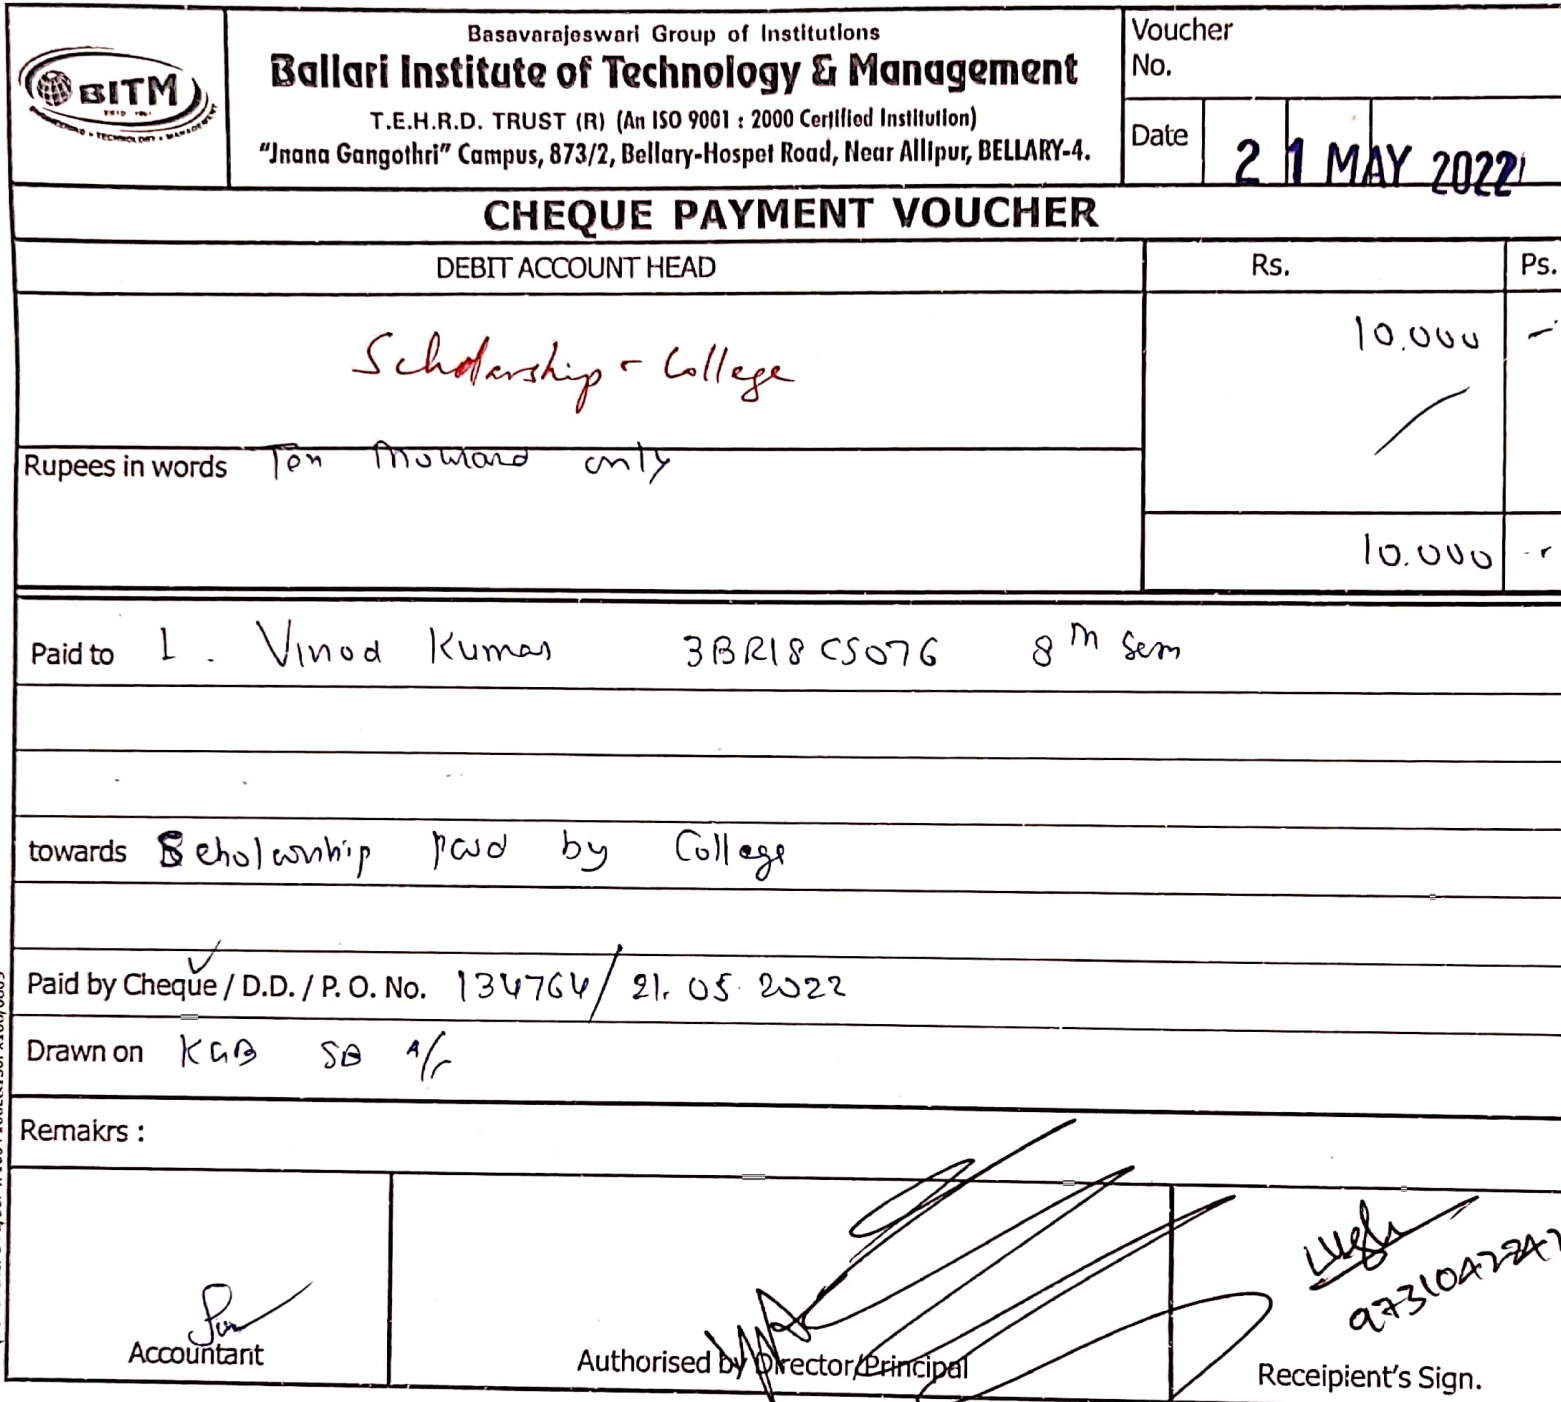 Basavarajeswari Group of Institutions
Ballari Institute of Technology & Management
T.E.H.R.D. TRUST (R) (An ISO 9001 : 2000 Certified Institution)
"Jnana Gangothri" Campus, 873/2, Bellary-Hospet Road, Near Allipur, BELLARY-4.
BITM
Voucher
No.
Date 21 MAY 2022
CHEQUE PAYMENT VOUCHER
DEBIT ACCOUNT HEAD Rs. Ps.
Scholarship - College 10.000 -
Rupees in words Ten Thousand only
10.000 -
Paid to L. Vinod Kumar 3BR18CS076 8th Sem
towards Scholarship paid by College
Paid by Cheque / D.D. / P. O. No. 134764/ 21.05.2022
Drawn on KGB SB A/c
Remakrs :
Accountant
Authorised by Director/Principal
Receipient's Sign.